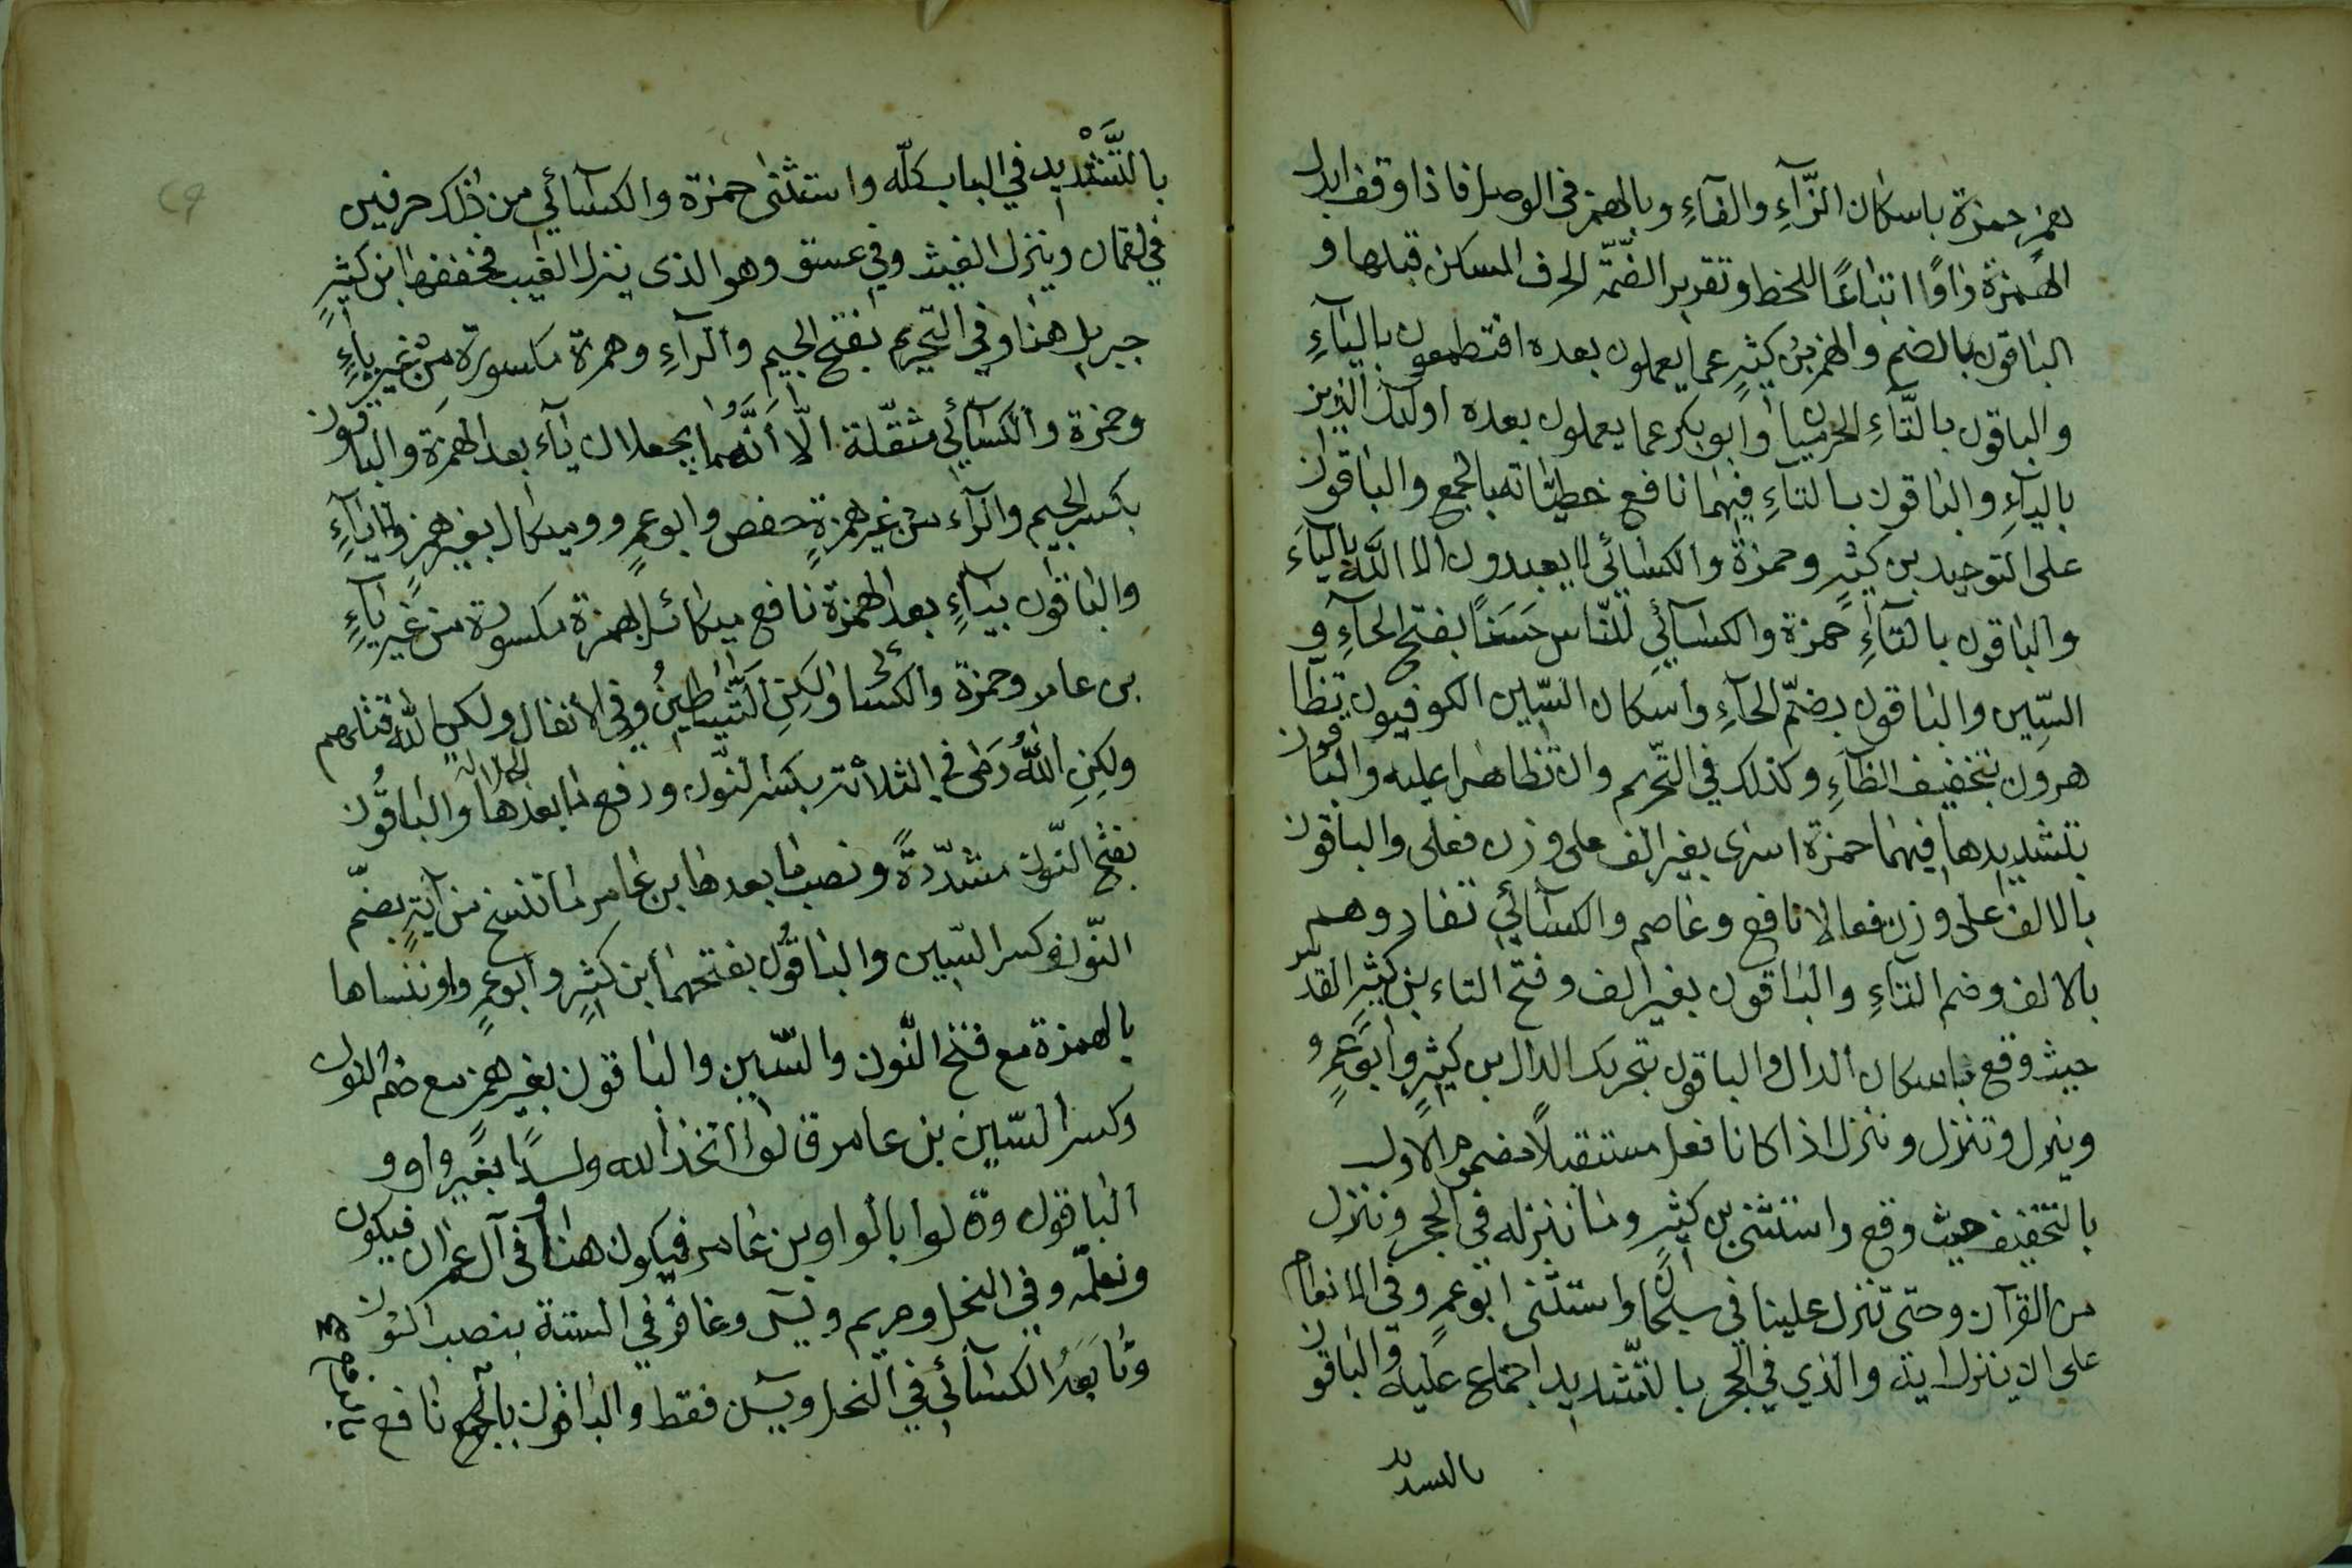 همز حمزة باسكان الزّآءِ والفآءِ وبالهمز فى الوصل فاذا وقف ابدل
الهمزة واوًا اتباعًا للخط وتقدير الضمّة الحرف المسكن قبلها و
الباقون بالضم والهمز بن كثيرٍ عما يعملون بعده افتطمعون باليآءِ
والباقون بالتّآءِ الحرميان وابوبكر عما يعملون بعده اولئك الذين
باليآءِ والباقون بالتاءِ فيهما نافع خطيئاته بالجمع والباقون
على التوحيد بن كثيرٍ وحمزة والكسائي لا يعبدون الا اللّه بالياءَ
والباقون بالتآءِ حمزة والكسآئي للنّاس حَسَنًا بفتح الحآءِ و
السّين والباقون بضمّ الحآءِ واسكان السّين الكوفيون تظا
هرون بتخفيف الظآءِ وكذلك في التّحريم وان تظاهرا عليه والباقون
بتشديدها فيهما حمزة اسرى بغير الف على وزن فعلى والباقون
بالالف على وزن فعالا نافع وعاصم والكسآئي تفادوهم
بالالف وضم التآءِ والباقون بغير الف وفتح التاء بن كثير القدس
حيث وقع باسكان الدال والباقون بتحريك الدال بن كثيرٍ وابو عمرٍو
وينزل وتنزل وننزل اذا كانا فعل مستقبلًا مضموم الاول
بالتخفيف حيث وقع واستثنى بن كثيرٍ وما ننزله في الحجر وننزل
من القرآن وحتى تنزل علينا في سبحان واستثنى ابو عمرٍو في الانعام
على ان ينزل اية والذي في الحجر بالتّشديد اجماع عليه والباقون
بالتشديد
بالتَّشْديد في الباب كلّه واستثنى حمزة والكسآئي من ذلك حرفين
في لقمان وينزل الغيث وفي عسق وهو الذى ينزل الغيب فخففهما ابن كثيرٍ
جبريل هنا وفي التحريم بفتح الجيم والرآءِ وهمزة مكسورة مِنْ غير ياءٍ
وحمزة والكسآئي مثقّلة الّا أنّهما يجعلان يآء بعد الهمزة والباقون
بكسر الجيم والرآء من غير همزةٍ حفص وابو عمرٍو وميكال بغير همزٍ ولا يآءٍ
والباقون بيآءٍ بعد الهمزة نافع ميكائل بهمزة مكسورة من غير يآءٍ
بن عامر وحمزة والكسائى ولكِنِ الشّياطينُ وفي الأنفال ولكن اللّه قتلهم
ولكِنِ اللّهُ رَمٰى في الثلاثة بكسر النّون ورفع ما بعدها الجلالة والباقُون
بفتح النّون مشدّدةً ونصب ما بعدها بن عامر ما ننسخ من آيةٍ بضمّ
النّون وكسر السّين والباقُون بفتحهما ابن كثيرٍ وابو عمرٍو او ننساها
بالهمزة مع فتح النّون والسّين والباقون بغير همزٍ مع ضم النون
وكسر السّين بن عامر قالوا اتخذ الله ولدًا بغير واو و
الباقون وقالوا بالواو بن عامر فيكون هنا وفى آل عمران فيكون
ونعلّمه وفي النحل ومريم ويسٓ وغافر في الستة بنصب النون
وتابعَهُ الكسآئي في النحل ويسٓ فقط والباقون بالرفع نافع